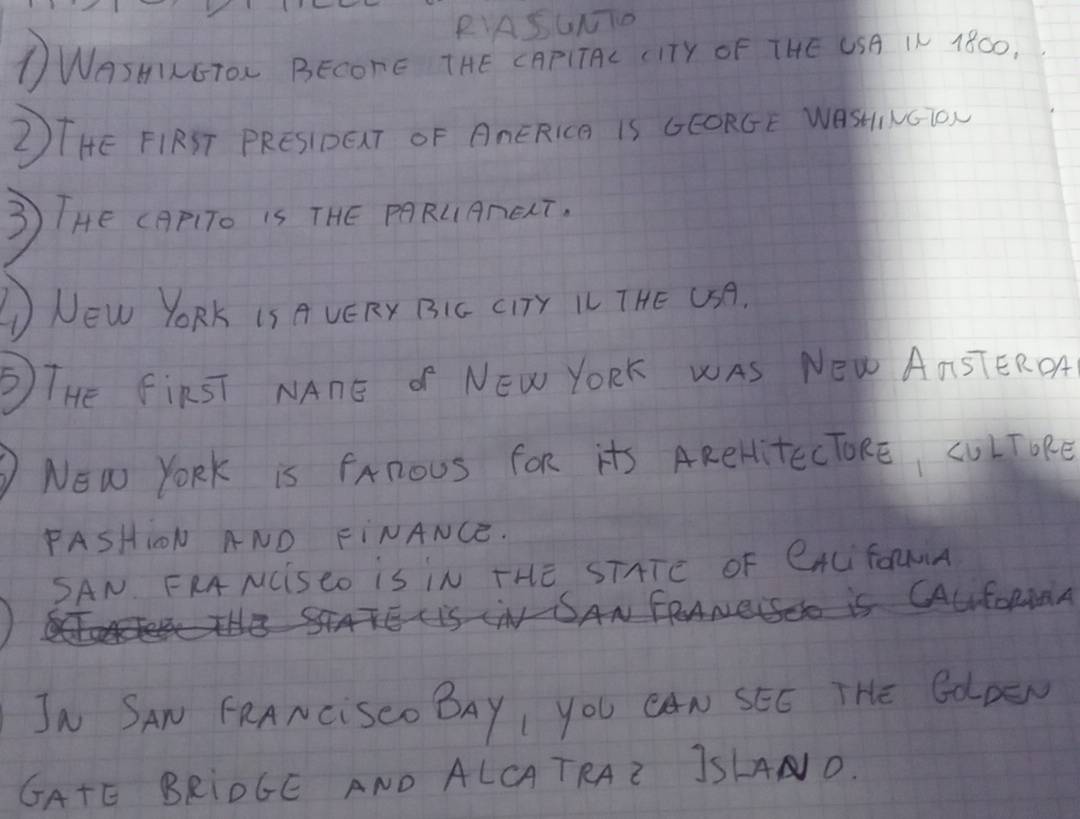 RIASSUNTO
1) WASHINGTON BECOME THE CAPITAL CITY OF THE USA IN 1800.
2) THE FIRST PRESIDENT OF AMERICA IS GEORGE WASHINGTON
3) THE CAPITO IS THE PARLIAMENT.
4) NEW YORK IS A VERY BIG CITY IN THE USA.
5) THE FIRST NAME OF NEW YORK WAS NEW AMSTERDA
NEW YORK IS FAMOUS FOR ITS ARCHITECTORE, CULTORE
FASHION AND FINANCE.
SAN FRANCISCO IS IN THE STATE OF CALIFORNIA
THE STATE IS IN SAN FRANCISCO IS CALIFORNIA
IN SAN FRANCISCO BAY, YOU CAN SEE THE GOLDEN
GATE BRIDGE AND ALCATRAZ ISLAND.